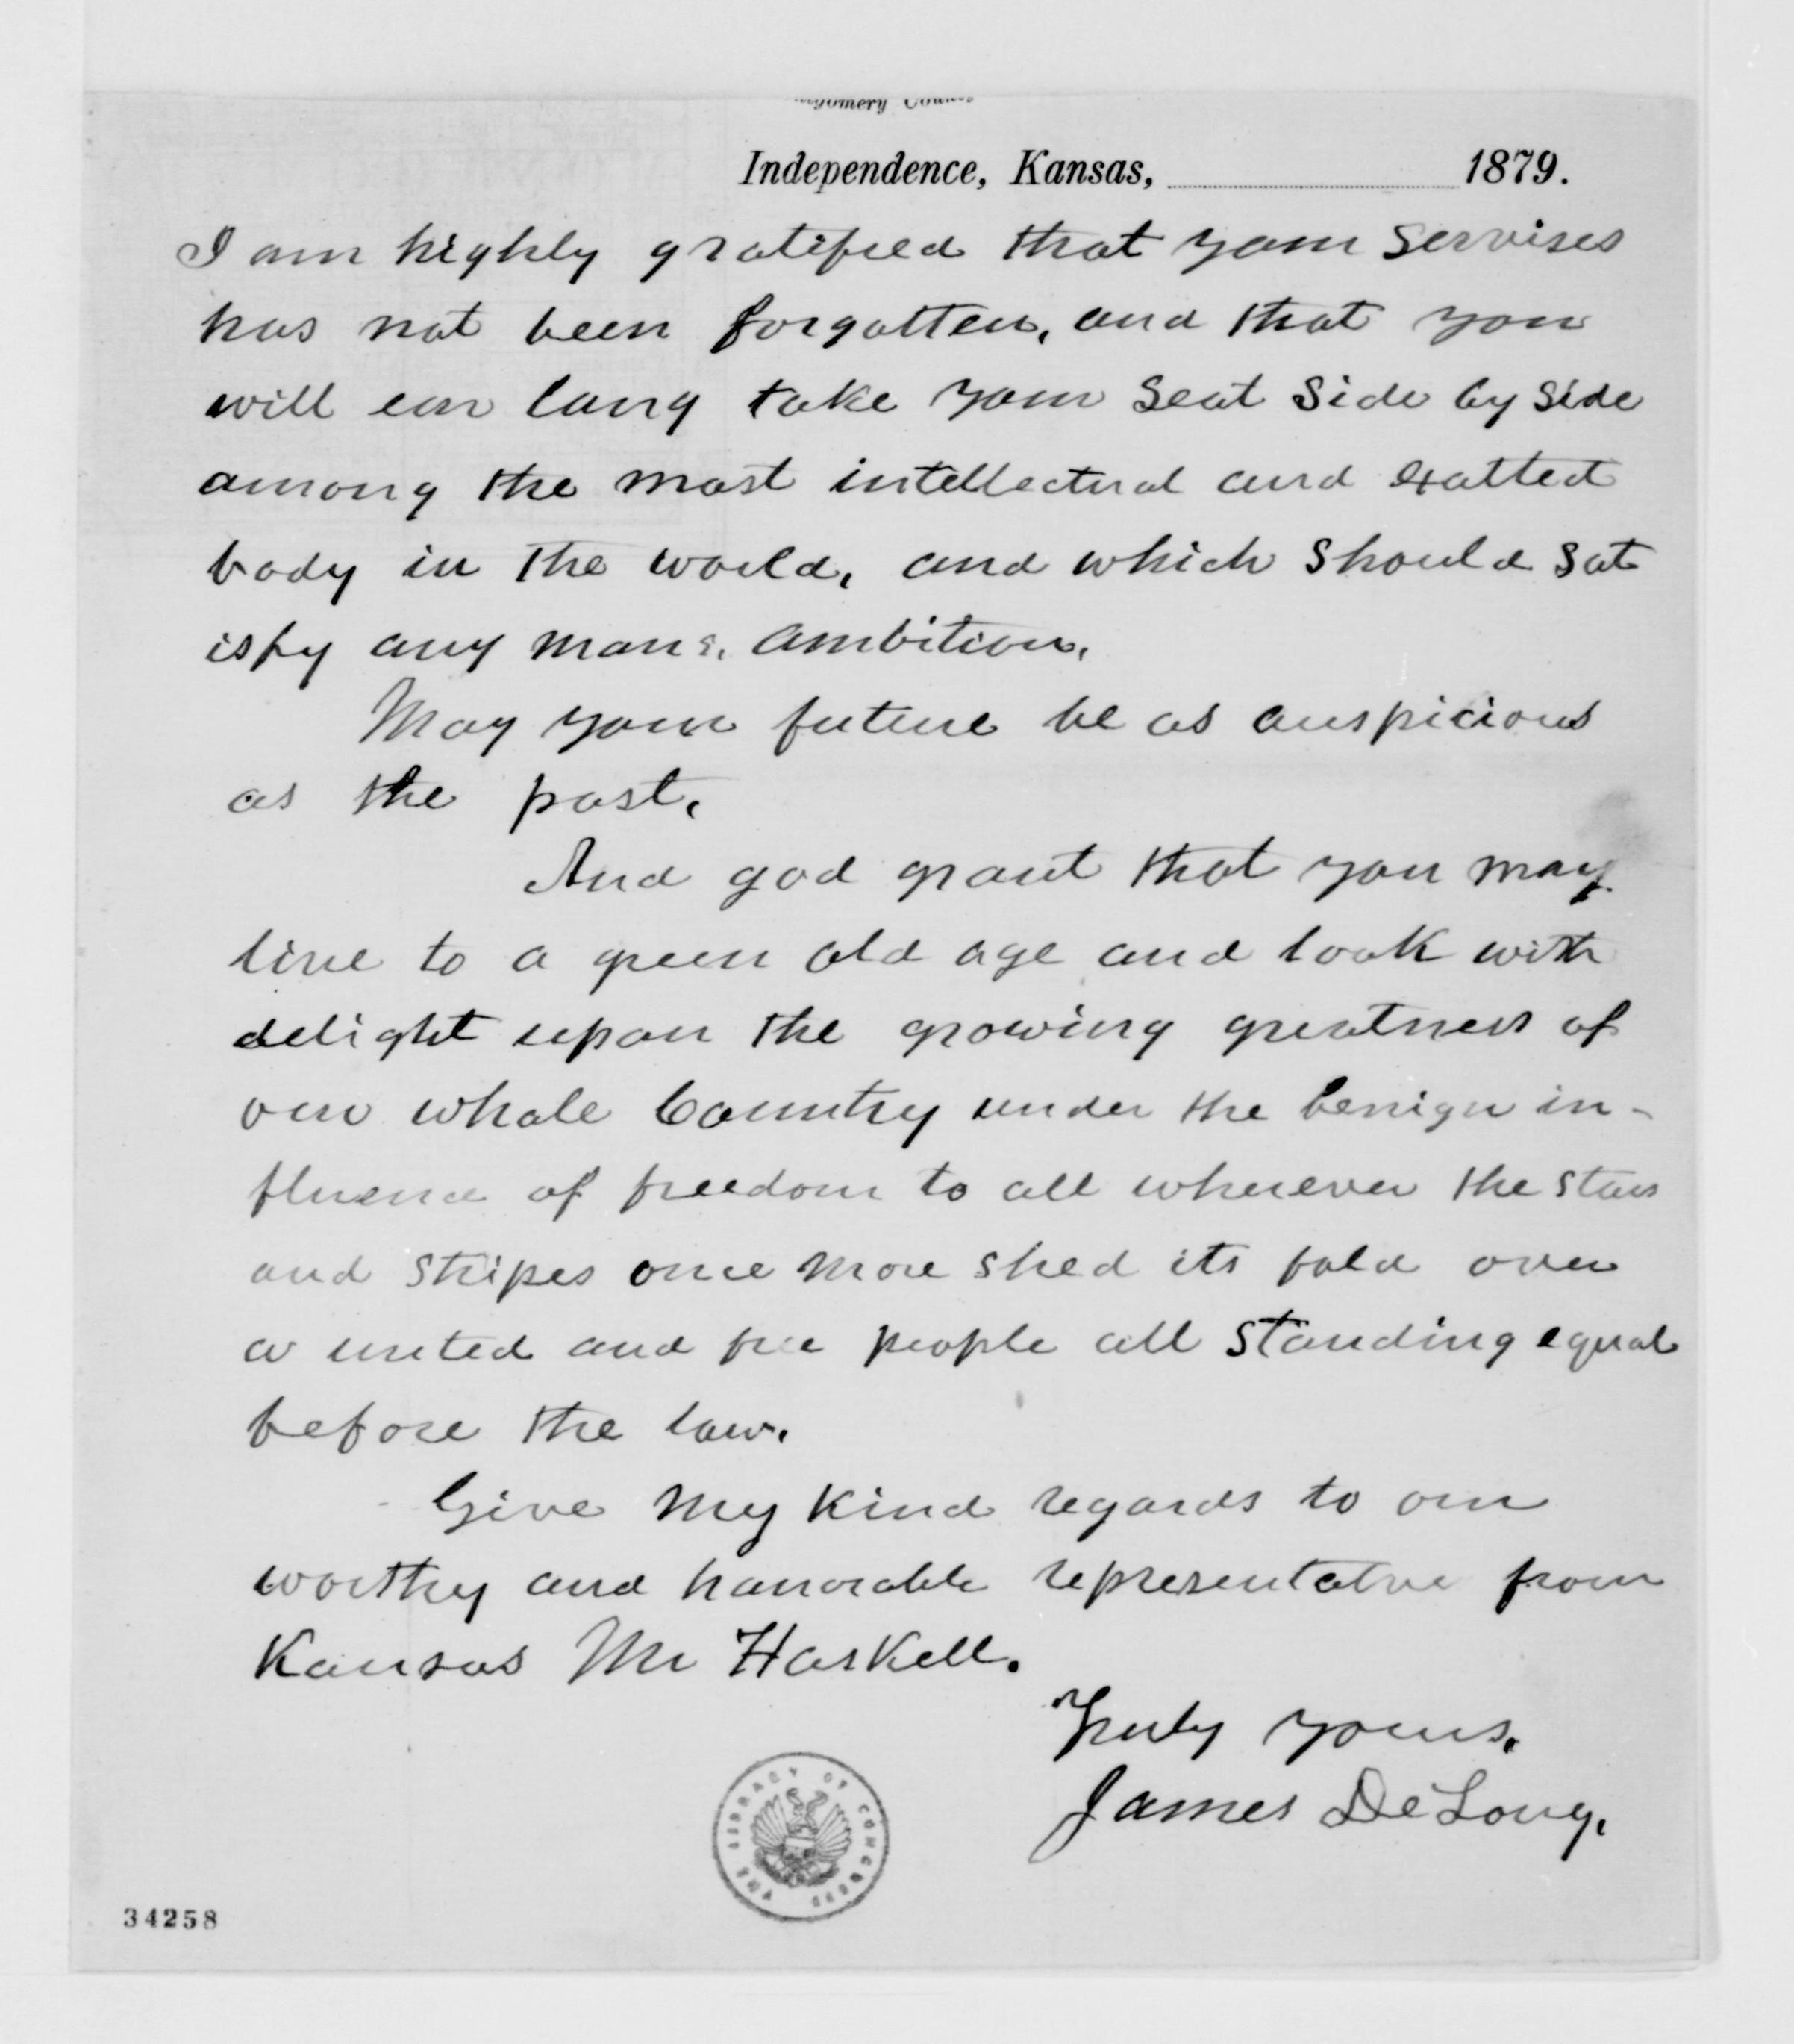 Independence, Kansas, 1879.
I am highly gratified that your servises
has not been forgotten, and that you
will ear long take your seat side by side
among the most intellectual and exalted
body in the world, and which should sat
isfy any mans, ambition.
May your future be as auspicious
as the past.
And god grant that you may
live to a green old age and look with
delight upon the growing greatness of
our whole Country under the benign in-
fluence of freedom to all wherever the stars
and stripes once more shed its fold over
a united and free people all standing equal
before the law.
Give my kind regards to our
worthy and honorable representative from
Kansas Mr Haskell.
Truly yours.
James DeLong.
THE LIBRARY OF CONGRESS
34258